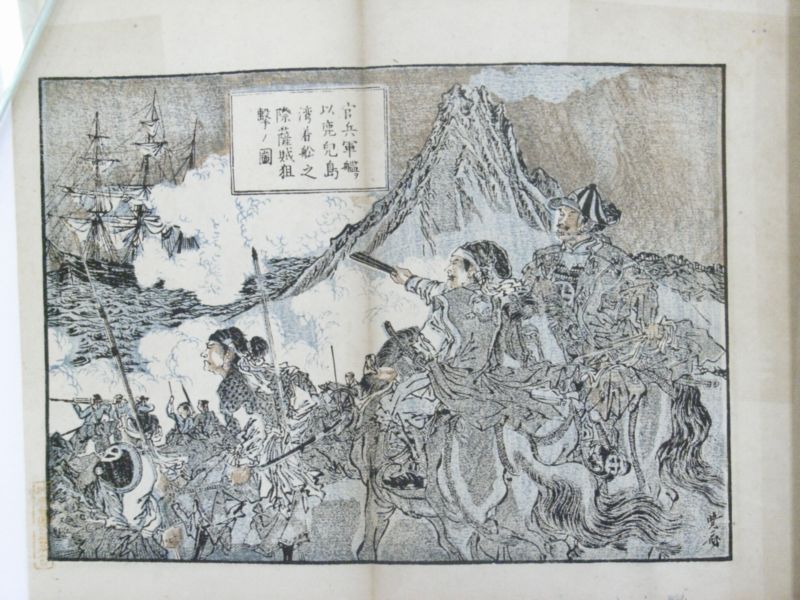 官兵軍艦
以鹿児島
湾着舩之
際薩賊狙
撃ノ圖